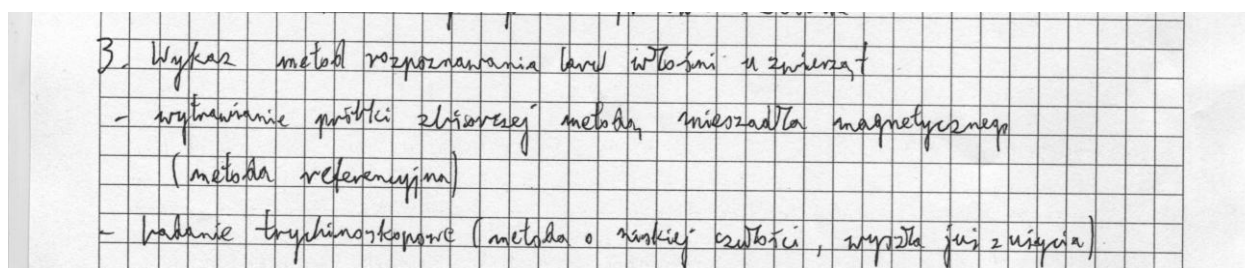 3. Wykaz metod rozpoznawania larw włośni u zwierząt
- wytrawianie próbki zbiorczej metodą mieszadła magnetycznego
(metoda referencyjna)
- badanie trychinoskopowe (metoda o niskiej czułości, wyszła już z użycia)